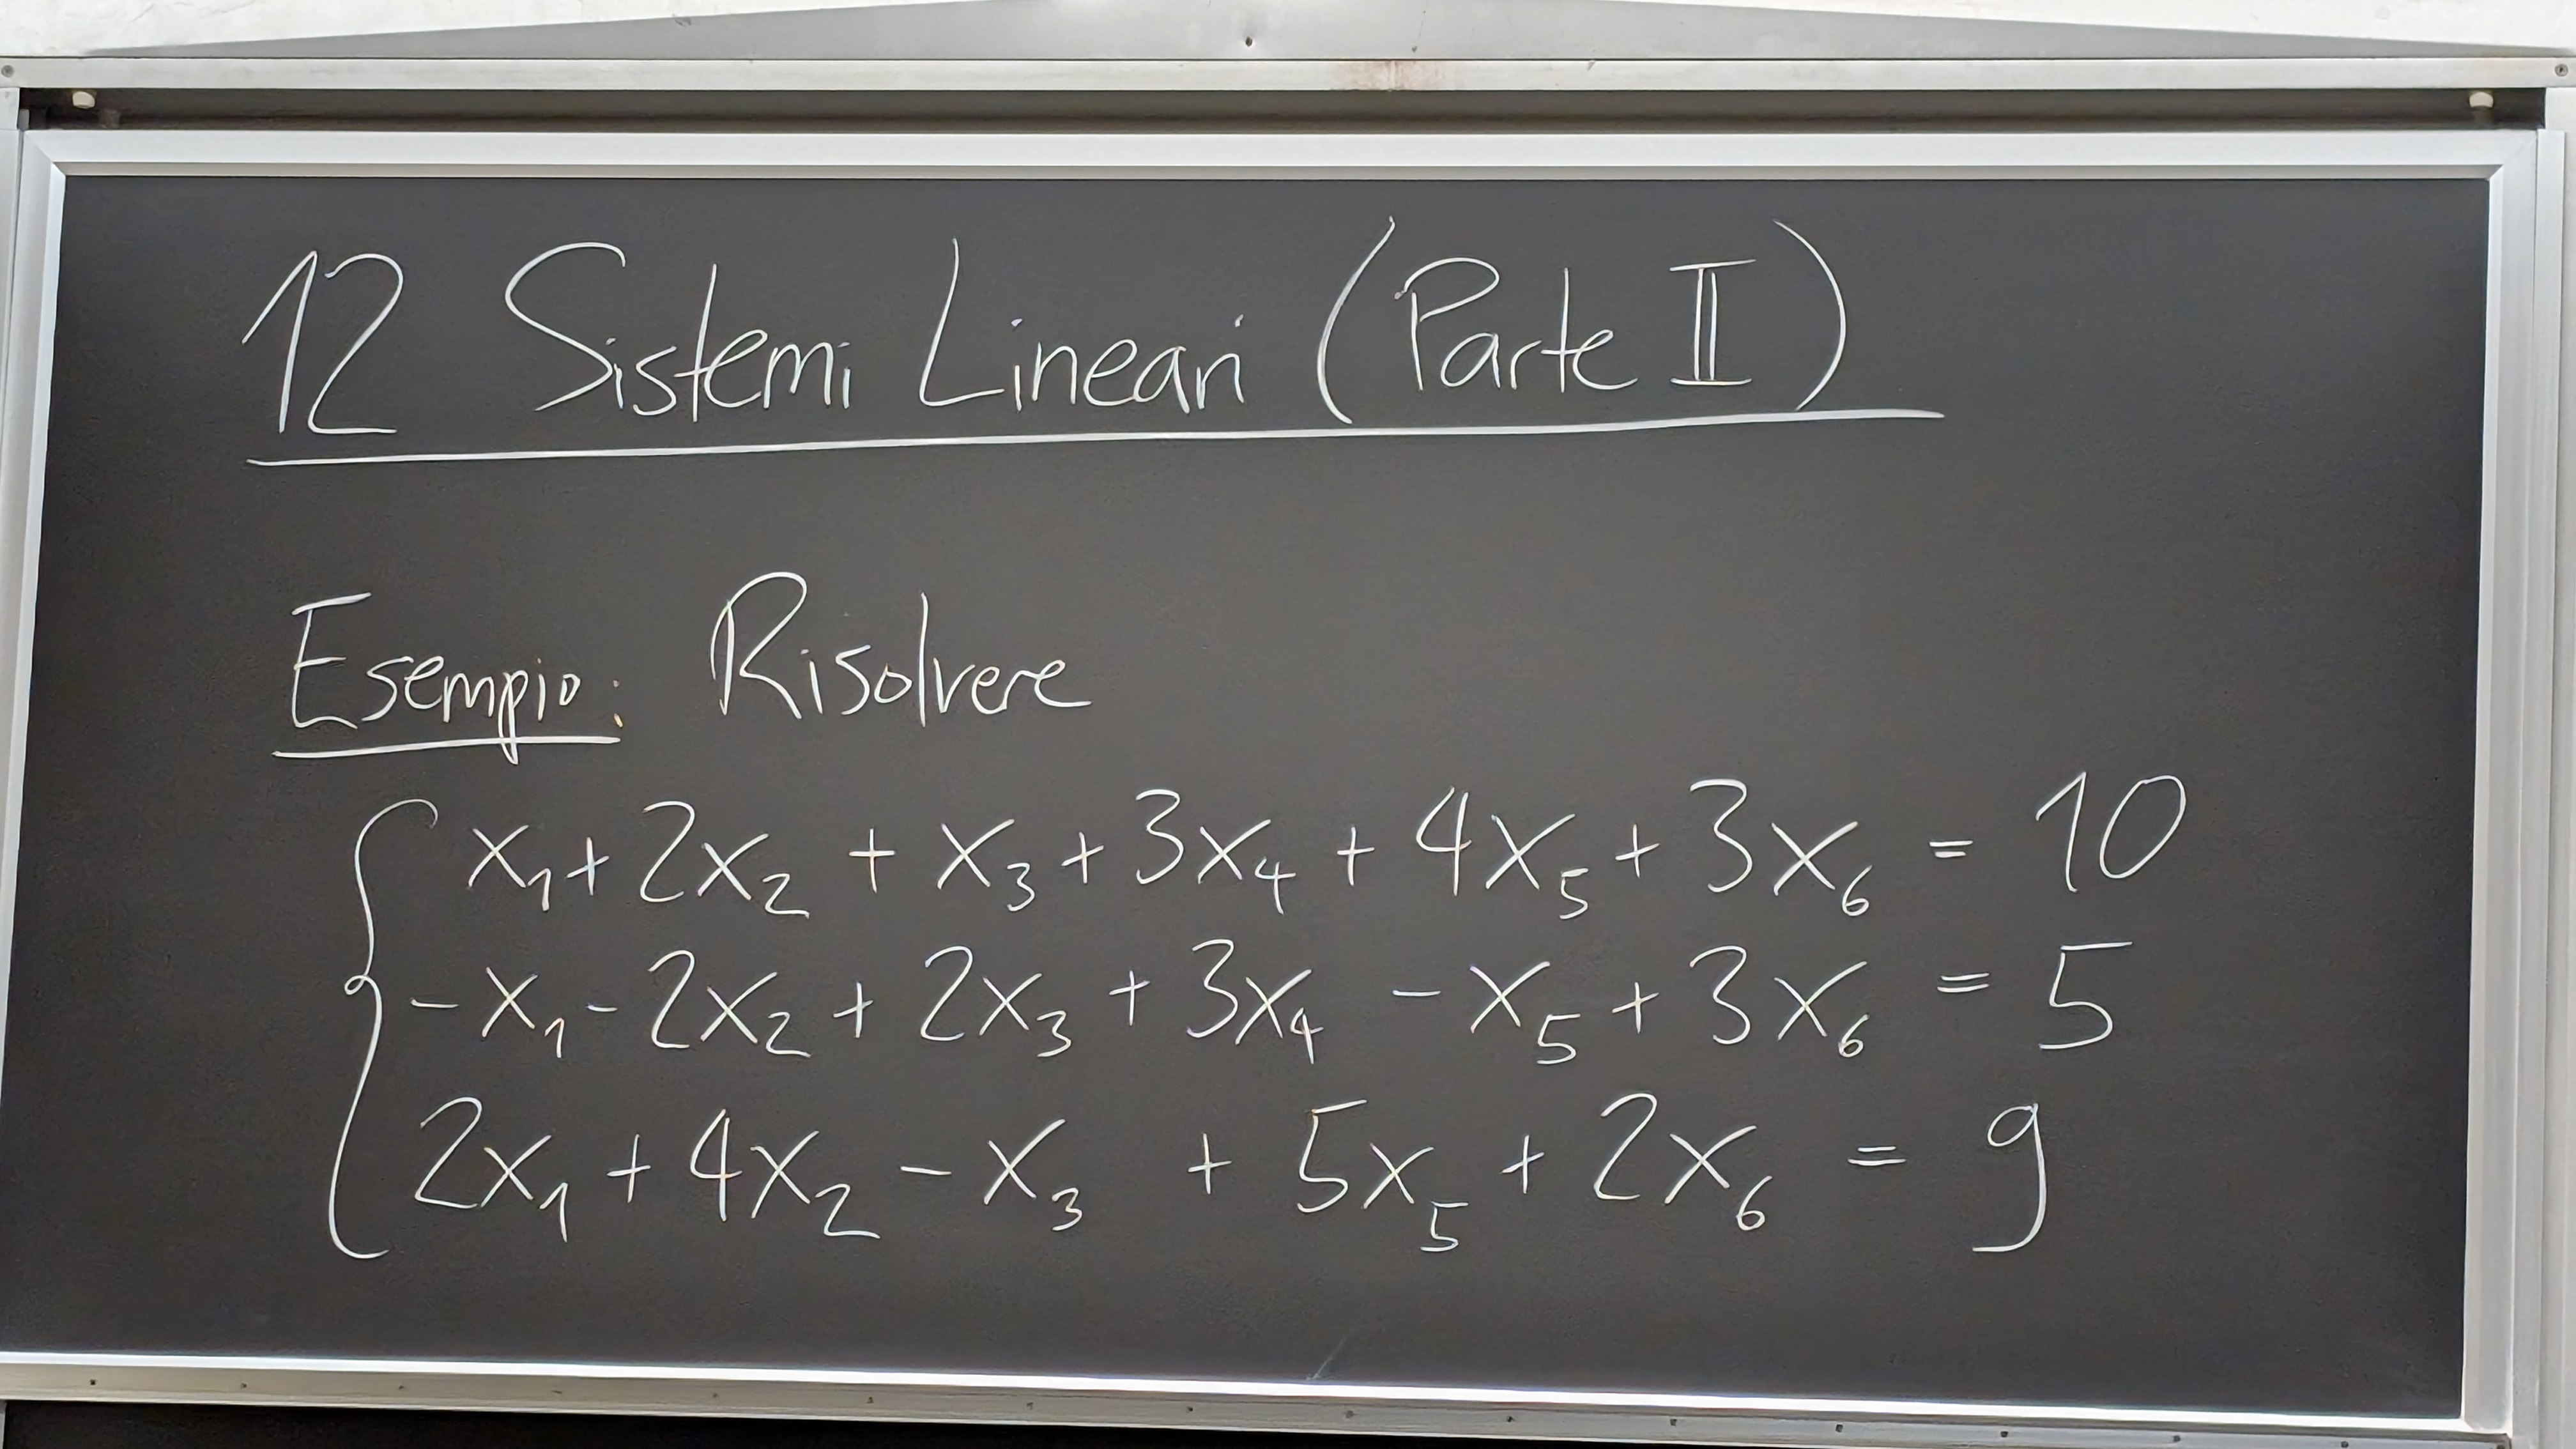 12 Sistemi Lineari (Parte II)
Esempio: Risolvere
x₁ + 2x₂ + x₃ + 3x₄ + 4x₅ + 3x₆ = 10
-x₁ - 2x₂ + 2x₃ + 3x₄ - x₅ + 3x₆ = 5
2x₁ + 4x₂ - x₃ + 5x₅ + 2x₆ = 9